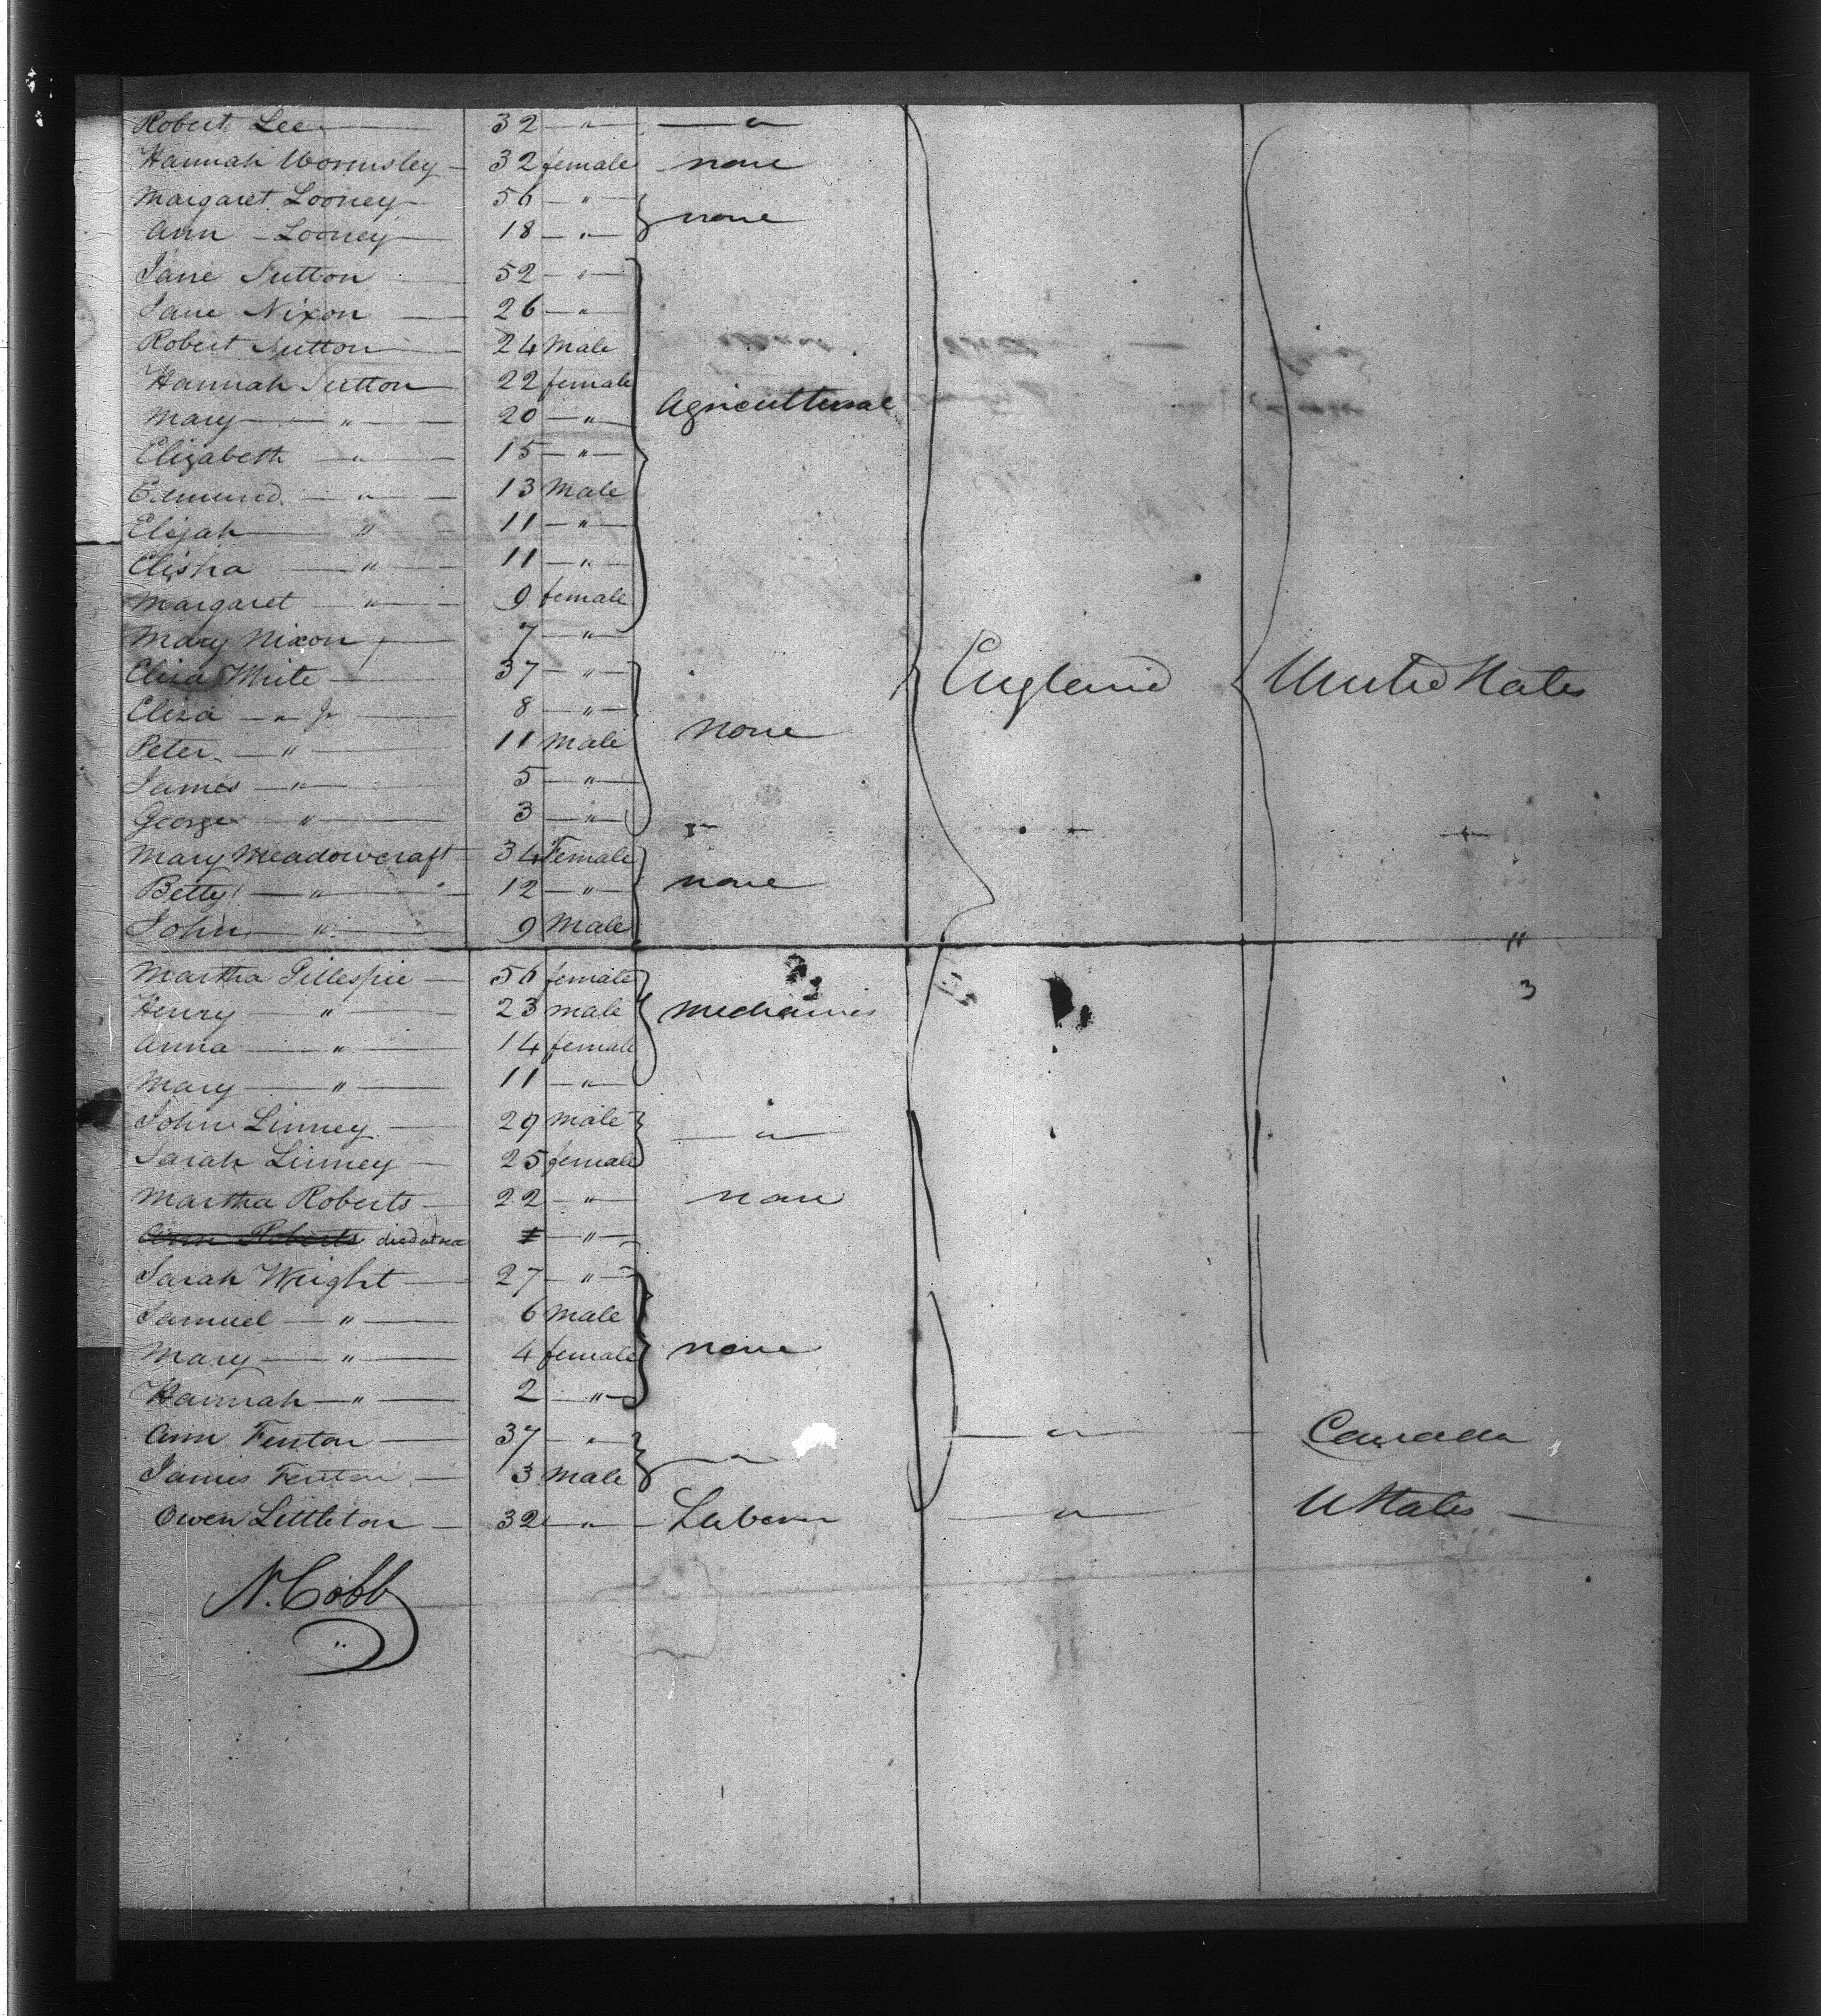 Robert Lee — 32 — " — — " —
Hannah Wormsley — 32 female none
Margaret Looney — 56 — " —
none
Ann — Looney — 18 — " —
Jane Sutton — 52 — " —
Jane Nixon — 26 — " —
Robert Sutton — 24 Male
Hannah Sutton — 22 female
Agricultural
Mary — " — 20 — " —
Elizabeth — " — 15 — " —
Edmund — " — 13 Male
Elijah — " — 11 — " —
Elisha — " — 11 — " —
Margaret — " — 9 female
Mary Nixon — 7 — " —
Eliza White — 37 — " — England United States
Eliza — " Jr — 8 — " —
Peter — " — 11 Male none
James — " — 5 — " —
George — " — 3 — " —
Mary Meadowcraft 34 Female
Betty — " — 12 — " — none
John — " — 9 Male
11
Martha Gillespie — 56 female
3
Henry — " — 23 male Mechanics
Anna — " — 14 female
Mary — " — 11 — " —
John Linney — 29 male — " —
Sarah Linney — 25 female
Martha Roberts — 22 — " — none
Ann Roberts died at sea — " —
Sarah Wright — 27 — " —
Samuel — " — 6 Male
Mary — " — 4 female none
Hannah — " — 2 — " —
Ann Fenton — 37 — " — — " — — " — Canada
James Fenton — 3 Male
Owen Littleton — 32 — " — Laborer — " — U States —
N. Cobb